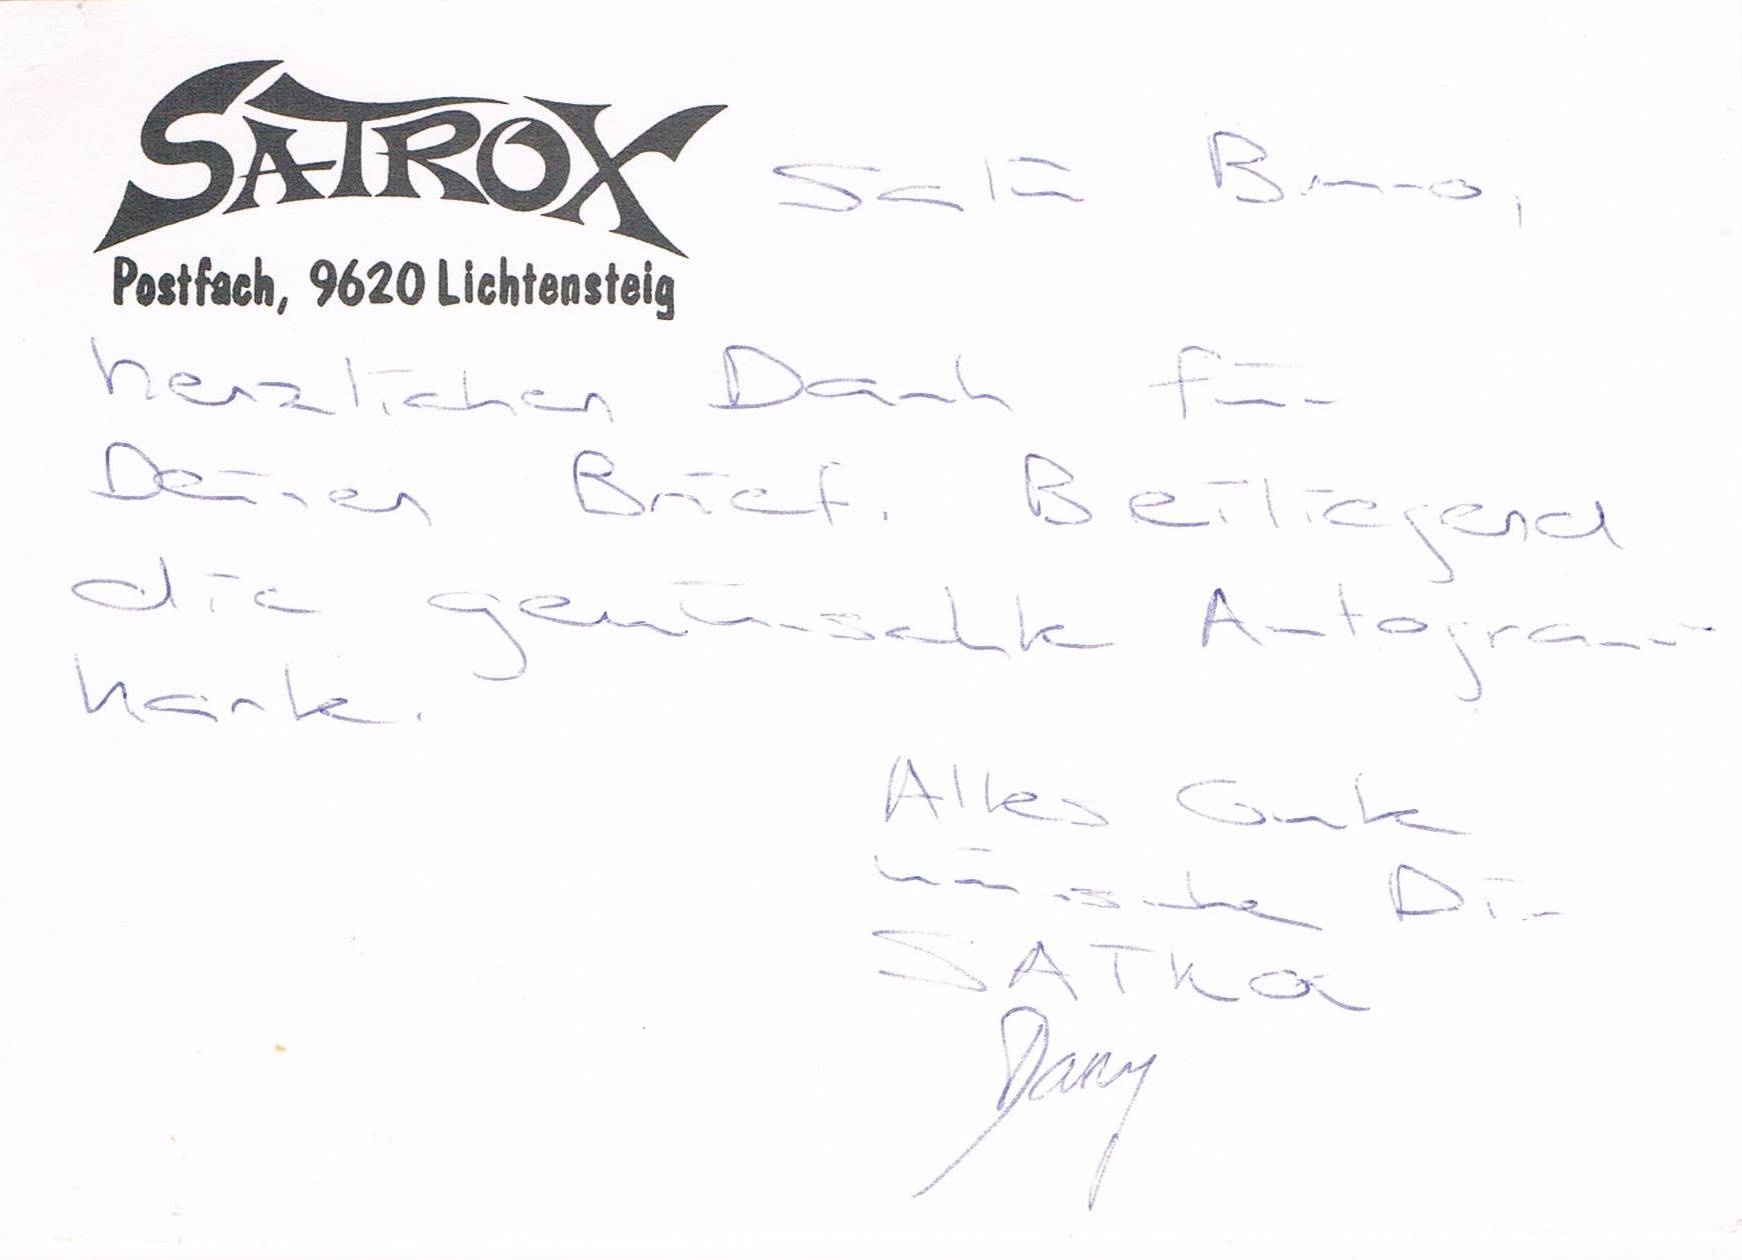 SATROX
Postfach, 9620 Lichtensteig
Salü Bruno,
herzlichen Dank für
Deinen Brief. Beiliegend
die gewünschte Autogramm-
karte.
Alles Gute
wünscht Dir
Dany